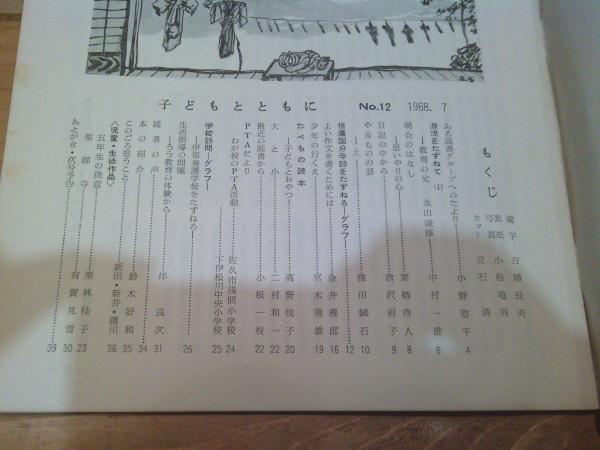 子どもとともに No.12 1968. 7
もくじ
題字 古幡長夫
表紙 小松竜男
写真
カット 立石 清
ある読書グループへのたより 小野敬平 4
源流をたずねて (1)
―教育の父 永山盛輝― 中村一雄 6
朝会のはなし
―思いやりの心― 栗栖啓人 8
日記の中から 倉沢直子 9
やきものの話
―土― 篠田鉄石 10
信濃国分寺跡をたずねる―グラフ― 12
よい作文を書くためには 金井義郎 16
少年の行くえ 宮木雅雄 19
たべもの読本
―子どもとおやつ― 高野悦子 20
大と小 二村和一 22
最近の読書から 小松一枝 22
PTAだより
わが校のPTA活動 佐久市浅間小学校 24
下伊松川中央小学校 25
学校訪問―グラフ―
―伊那養護学校をたずねる― 26
生活指導の問題
―ろう教育の体験から― 伴 良次 31
読者の声 34
本の紹介 35
このごろ思うこと 鈴木好和
新田・新井・磯川 36
<児童・生徒作品>
五年生の決意 栗林桂子 23
薬師寺 有賀見雪 30
あとがき・次号予告 39